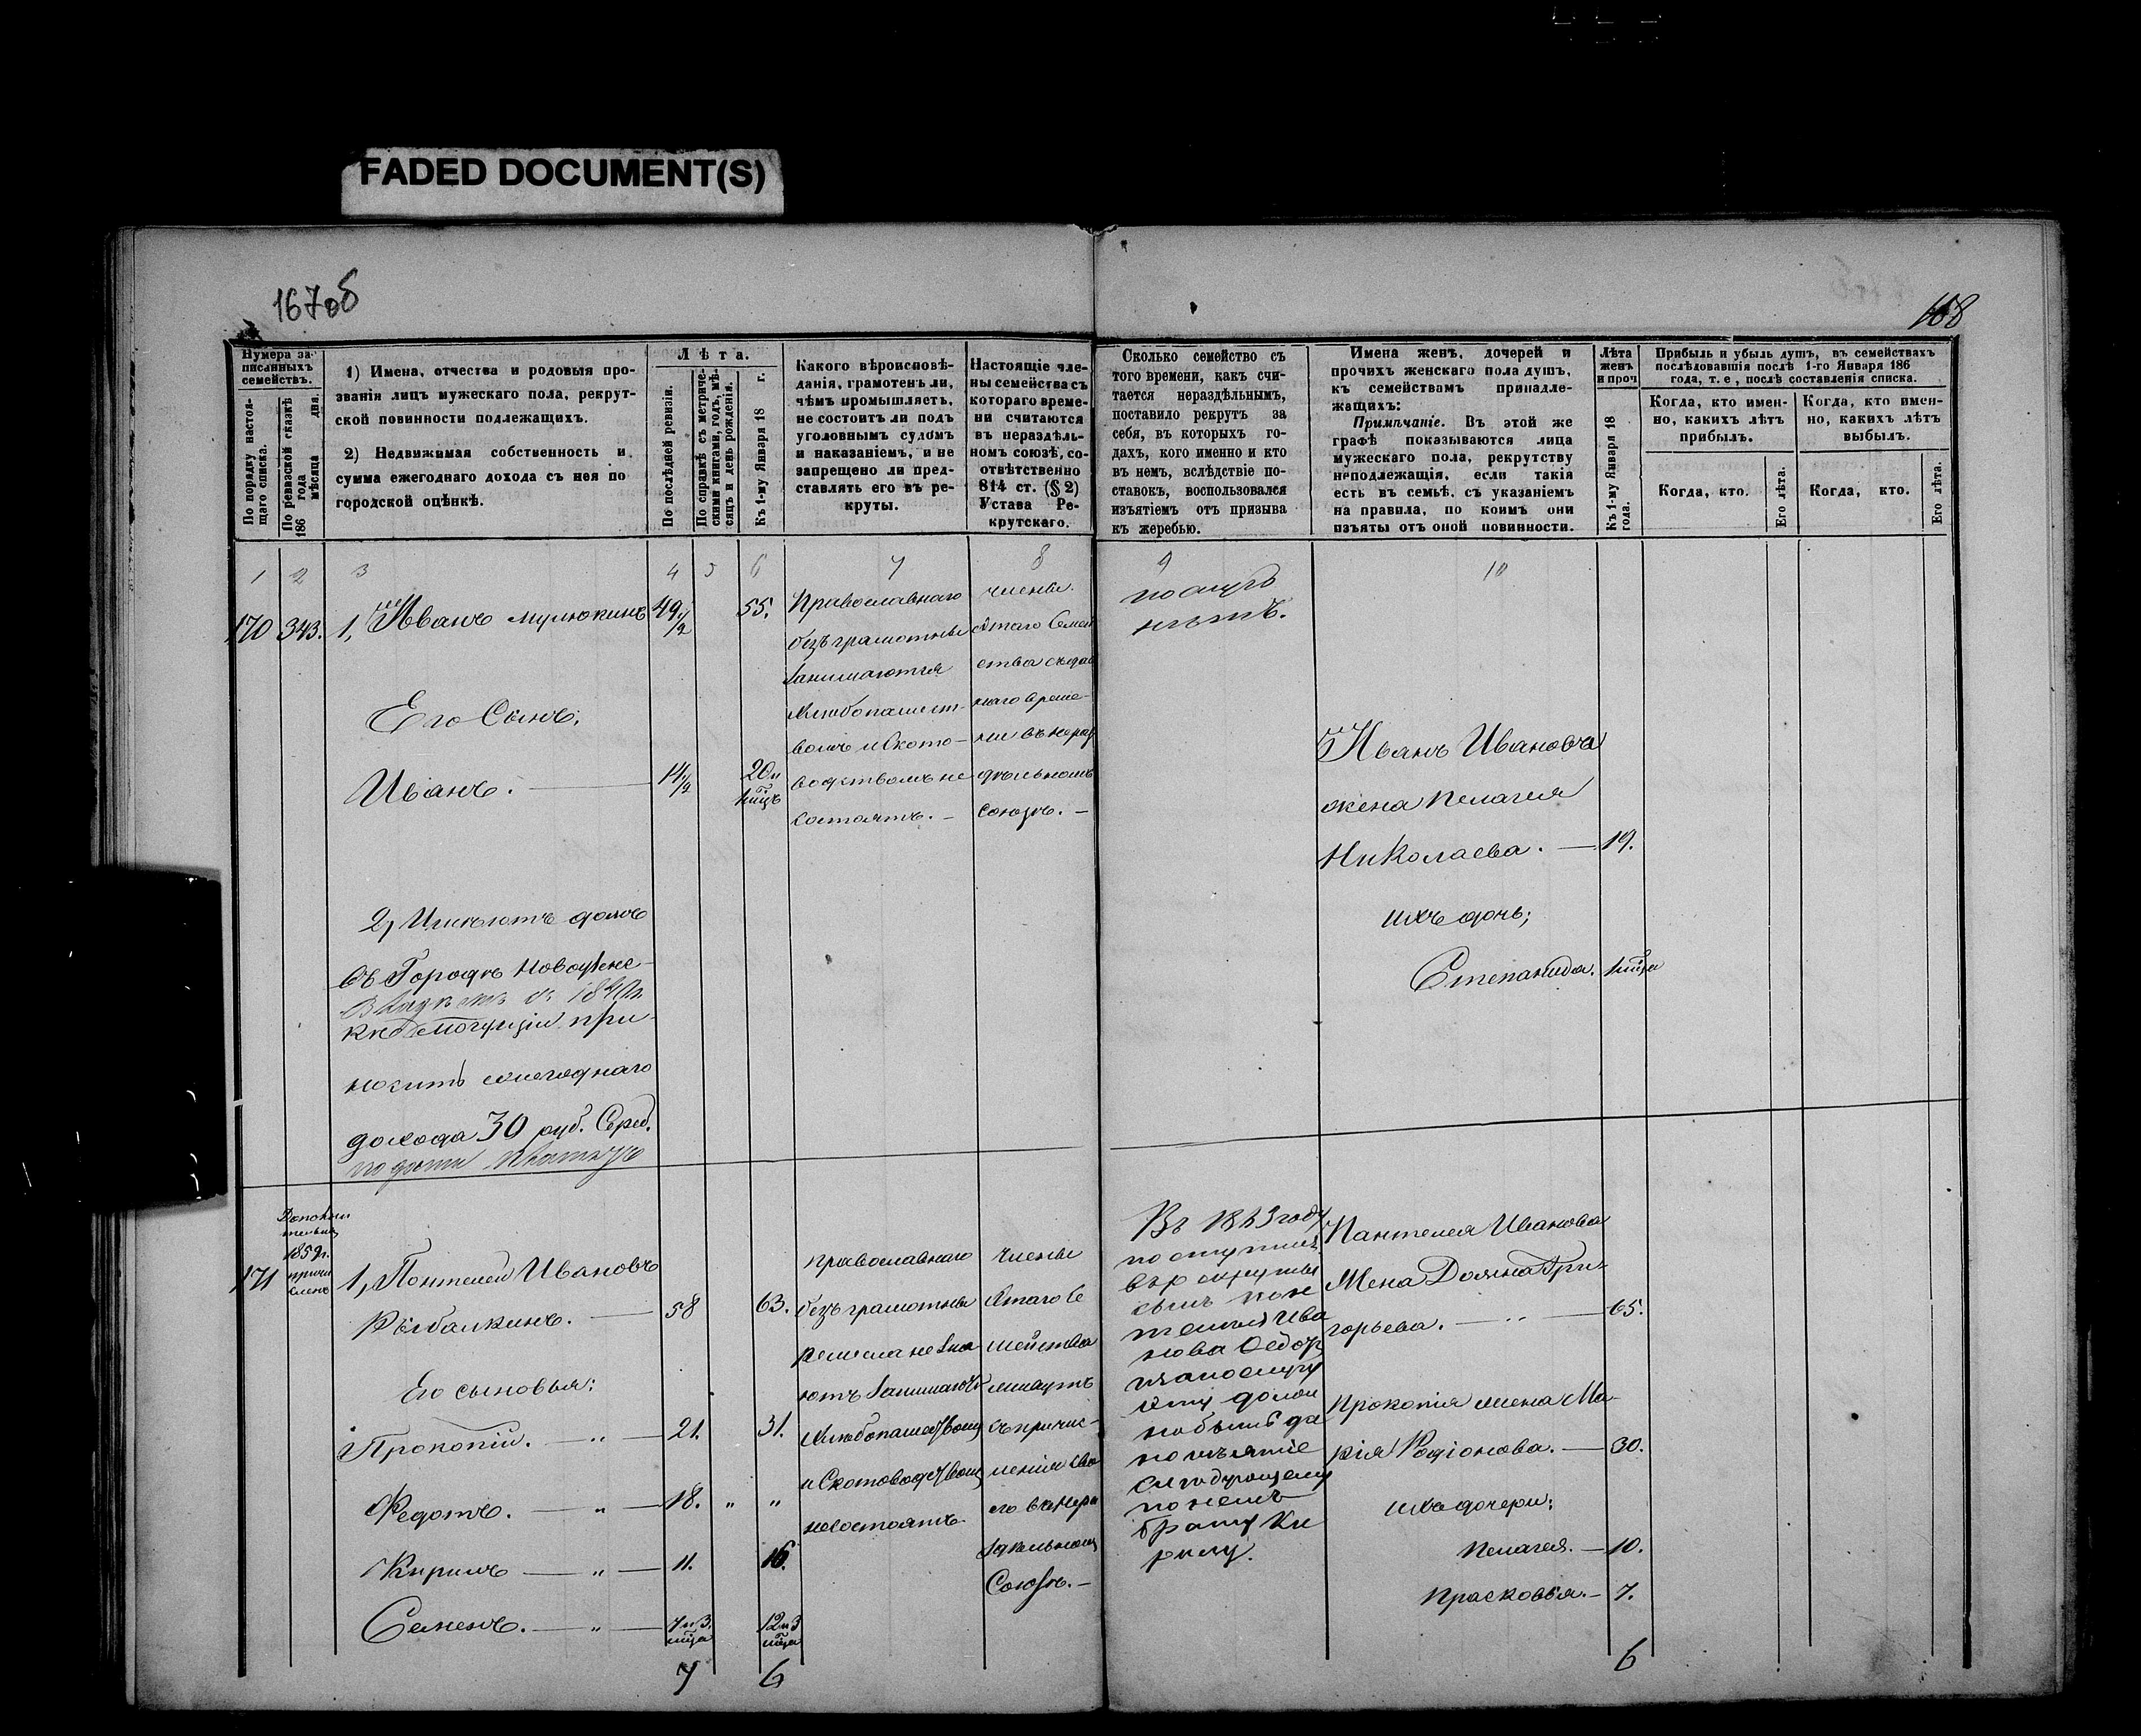 FADED DOCUMENT(S)
167 об
168
Нумера записанныхъ семействъ.
По порядку настоящаго списка.
По ревизской сказкѣ 186 года мѣсяца дня.
1) Имена, отчества и родовыя прозванія лицъ мужескаго пола, рекрутской повинности подлежащихъ.
2) Недвижимая собственность и сумма ежегоднаго дохода съ нея по городской оцѣнкѣ.
Лѣта.
По послѣдней ревизіи.
По справкѣ съ метрическими книгами, годъ, мѣсяцъ и день рожденія.
Къ 1-му Января 18 г.
Какого вѣроисповѣданія, грамотенъ ли, чѣмъ промышляетъ, не состоитъ ли подъ уголовнымъ судомъ и наказаніемъ, и не запрещено ли представлять его въ рекруты.
Настоящіе члены семейства съ котораго времени считаются въ нераздѣльномъ союзѣ, соотвѣтственно 814 ст. (§ 2) Устава Рекрутскаго.
Сколько семейство съ того времени, какъ считается нераздѣльнымъ, поставило рекрутъ за себя, въ которыхъ годахъ, кого именно и кто въ немъ, вслѣдствіе поставокъ, воспользовался изъятіемъ отъ призыва къ жеребью.
Имена женъ, дочерей и прочихъ женскаго пола душъ, къ семействамъ принадлежащихъ:
Примѣчаніе. Въ этой же графѣ показываются лица мужескаго пола, рекрутству неподлежащія, если такія есть въ семьѣ, съ указаніемъ на правила, по коимъ они изъяты отъ оной повинности.
Лѣта женъ и проч
Къ 1-му Января 18 года.
Прибыль и убыль душъ, въ семействахъ послѣдовавшія послѣ 1-го Января 186 года, т. е., послѣ составленія списка.
Когда, кто именно, какихъ лѣтъ прибылъ.
Когда, кто именно, какихъ лѣтъ выбылъ.
Когда, кто.
Его лѣта.
Когда, кто.
Его лѣта.
1 2 3 4 5 6 7 8 9 10
170 343. 1, Иванъ Мулюкинъ 49 1/2 55.
Его Сынъ;
Иванъ. 14 1/2 20 и
Православнаго
безъграмотны
Занимаются
Хлѣбопашест-
вомъ и Ското-
водствомъ не
состоятъ. –
члены
Этаго Семей
ства съдав
няго време-
ни въ нераз
дѣльномъ
союзѣ. –
нѣтъ.
Иванъ Иванова
жена Пелагея
Николаева. – 19.
ихъ дочь;
Степанида.
2, Имѣютъ домъ
въ Городѣ Новоузенс-
кѣ могущій при-
носить ежегоднаго
дохода 30 руб. Сереб.
171
1859 г.
причи
сленъ
1, Пантелей Ивановъ
Рыбалкинъ. – 58 63.
Его сыновья:
Прокопій. – " – 21. 31.
Федотъ. – " – 18. " "
Кирилъ – " – 11. 16.
Семенъ. – " – 7 и 3 мѣца 12 и 3 мѣца
7 6
православнаго
безъграмотны
ремесла не зна
ютъ Занимаются
Хлѣбопашествомъ
и Скотоводствомъ
не состоятъ
члены
Этаго Се
мейства
съ причис-
ленія сво
его въ нера
здѣльномъ
Союзѣ. –
поступилъ
сынъ Пан
телея Ива
нова Федор
слѣдующему
по немъ
брату Ки
рилу.
Пантелея Иванова
Жена Домна Гри-
горьева. – " – 65.
Прокопія жена Ма-
рія Родіонова. – 30.
ихъ дочери:
Пелагея. – 10.
Прасковья. – 7.
6